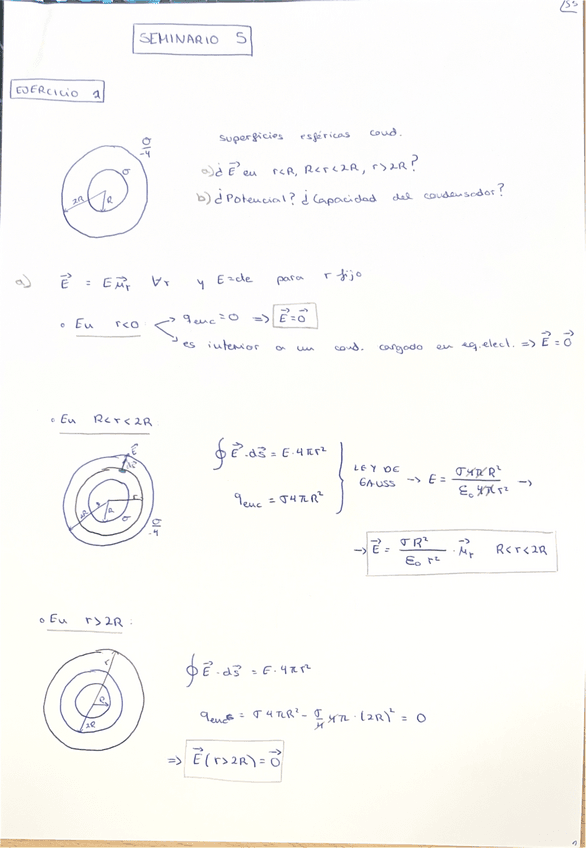 SEMINARIO 5
EJERCICIO 1
superficies esféricas cond.
a) ¿ E⃗ en r<R, R<r<2R, r>2R?
b) ¿Potencial? ¿Capacidad del condensador?
σ/-4
σ
2R
R
a) E⃗ = E μ⃗r ∀r y E=cte para r fijo
• En r<0 → qenc=0 => E⃗=0⃗
→ es interior a un cond. cargado en eq.elect. => E⃗=0⃗
• En R<r<2R
E⃗
dS⃗
r
2R
R
σ
σ/-4
∮E⃗·dS⃗ = E·4πr²
qenc = σ4πR²
LEY DE GAUSS → E = σ4πR² / ε₀4πr² →
→ E⃗ = σR² / ε₀ r² · μ⃗r R<r<2R
• En r>2R:
r
R
2R
∮E⃗·dS⃗ = E·4πr²
qenc = σ4πR² - σ/4 4π·(2R)² = 0
=> E⃗(r>2R)=0⃗